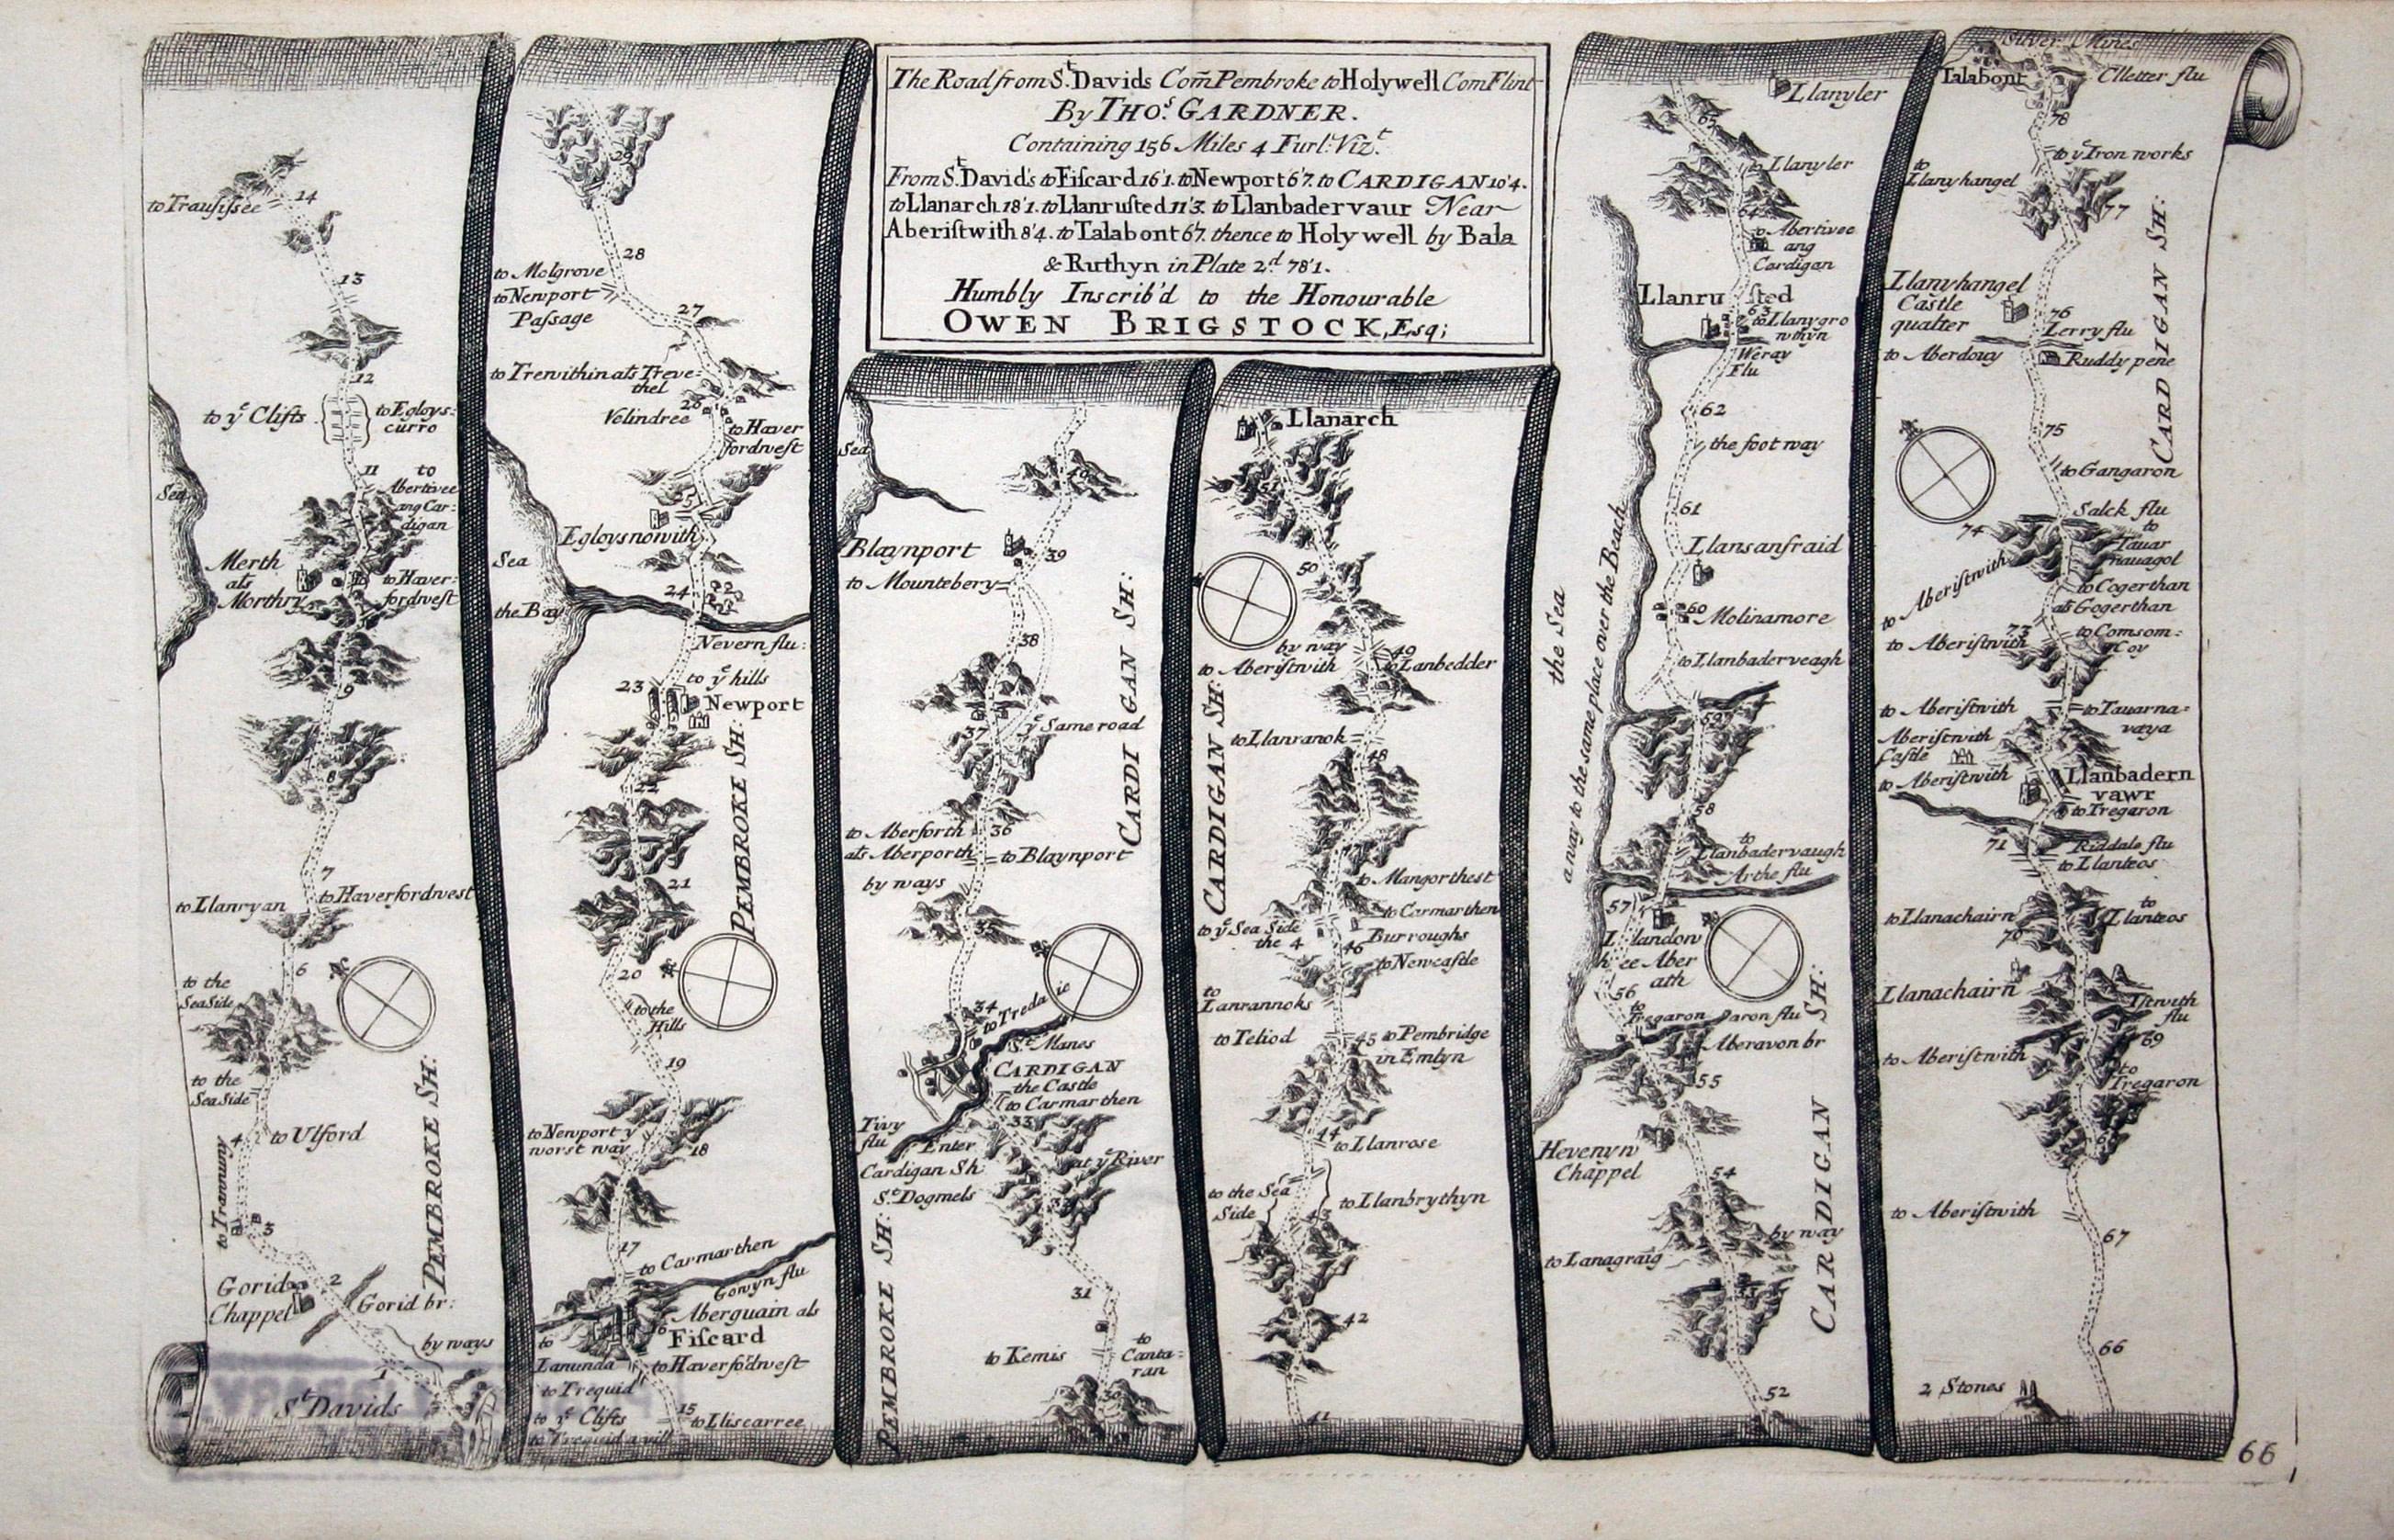 The Road from St. Davids Com Pembroke to Holywell Com Flint
By THOs. GARDNER.
Containing 156 Miles 4 Furl: Vizt.
From St. David's to Fiscard 16'1. to Newport 6'7. to CARDIGAN 10'4.
to Llanarch 18'1. to Llanrusted 11'3. to Llanbadervaur Near
Aberistwith 8'4. to Talabont 6'7. thence to Holywell by Bala
& Ruthyn in Plate 2d. 78'1.
Humbly Inscrib'd to the Honourable
OWEN BRIGSTOCK, Esq;
14
13
12
to ye Clifts
to Egloys:
curro
11
to
Abertivee
ang Car:
digan
Sea
Merth
als
Morthry
to Haver:
fordwest
9
8
7
to Llanryan
to Haverfordwest
6
to the
Sea Side
to the
Sea Side
4
to Ulford
to Trannuny
3
2
Gorid
Chappel
Gorid br:
PEMBROKE SH:
by ways
1
St Davids
29
28
to Molgrove
to Newport
Passage
27
to Trewithin als Treve:
thel
26
Velindree
to Haver
fordwest
25
Egloysnowith
Sea
24
the Bay
Nevern flu:
23
to ye hills
Newport
22
PEMBROKE SH:
21
20
to the
Hills
19
to Newport ye
worst way
18
17
to Carmarthen
Gowyn flu
Aberguain als
Fiscard
to
Lanunda
to Haverfordwest
to Trequid
15
to ye Clifts
to Lliscarree
to Trequid a vill
Sea
Blaynport
39
to Mountebery
38
CARDIGAN SH:
37
ye Same road
36
to Aberforth
als Aberporth
to Blaynport
by ways
35
34
St. Manes
CARDIGAN
the Castle
to Carmarthen
33
Tivy
flu
Enter
Cardigan Sh
at ye River
St Dogmels
PEMBROKE SH:
31
to Kemis
to
Canta:
ran
30
Llanarch
51
50
by way
to Aberistwith
49
to Lanbedder
CARDIGAN SH:
to Llanranok
48
to Mangorthest
to Carmarthen
to ye Sea Side
the 4
Burroughs
46
to Newcastle
to
Lanrannoks
to Teliod
45
to Pembridge
in Emlyn
44
to Llanrose
to the Sea
Side
to Llanbrythyn
43
42
41
Llanyler
65
to Llanyler
64
to Abertivee
ang
Cardigan
Llanrusted
63
to Llanygro
nthyn
Weray
Flu
62
the foot way
61
Llansanfraid
60
Molinamore
to Llanbaderveagh
the Sea
a way to the same place over the Beach
59
58
to
Llanbadervaugh
Arthe flu
57
56
to
Tregaron
Aberavon br
55
Hevenyn
Chappel
54
by way
to Lanagraig
CARDIGAN SH:
52
Silver Mines
Talabont
Clletter flu
78
to ye Iron works
to
Llanyhangel
77
CARDIGAN SH:
Llanyhangel
Castle
qualter
76
Lerry flu
to Aberdowy
Ruddy pene
75
to Gangaron
Salck flu
74
to
Tauar
nauagol
to Aberistwith
to Cogerthan
als Gogerthan
73
to Comsom:
Coy
to Aberistwith
to Aberistwith
to Tauarna:
vaya
Aberistwith
Castle
to Aberistwith
Llanbadern
vawr
to Tregaron
71
Riddale flu
to Llanteos
to Llanachairn
to
Llanteos
70
Llanachairn
Istwith
flu
69
to Aberistwith
to
Tregaron
to Aberistwith
67
66
2 Stones
66